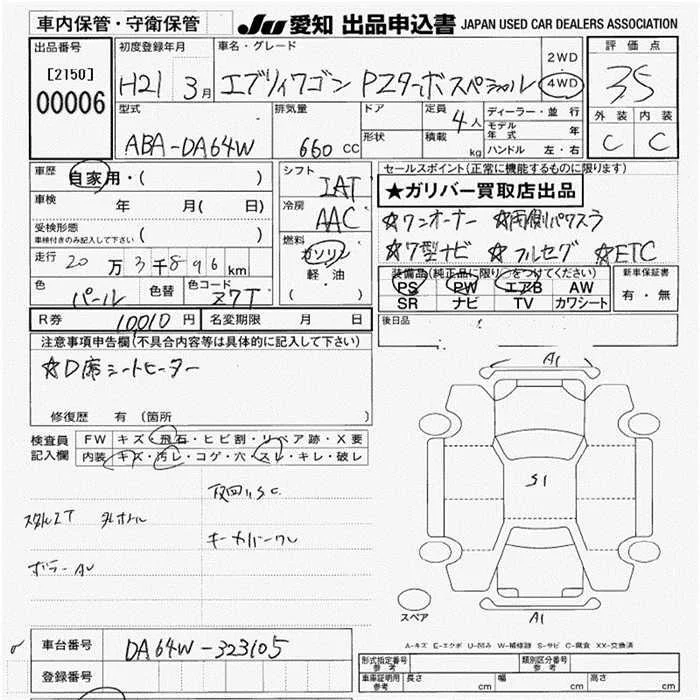 車内保管・守衛保管
JU 愛知 出品申込書 JAPAN USED CAR DEALERS ASSOCIATION
出品番号
[2150]
00006
初度登録年月
H21 3月
車名・グレード
エブリィワゴン PZターボスペシャル
2WD
4WD
評価点
3.5
外装 内装
C C
型式
ABA-DA64W
排気量
660 CC
ドア
形状
定員 4人
積載 kg
ディーラー・並行
モデル年式 年
ハンドル 左・右
車歴 自家用・( )
車検 年 月( 日)
受検形態
車検付きのみ記入して下さい ( )
走行 20万3千896km
色 パール 色替 色コード Z7T
シフト IAT
冷房 AAC
燃料 ガソリン
軽油
( )
セールスポイント(正常に機能するものに限ります)
★ガリバー買取店出品
☆ワンオーナー ☆両側パワスラ
☆7型ナビ ☆フルセグ ☆ETC
装備品(純正品に限り○をつけてください)
PS PW エアB AW
SR ナビ TV カワシート
新車保証書
有・無
R券 10,010円 名変期限 月 日
後日品
注意事項申告欄(不具合内容等は具体的に記入して下さい)
☆D席シートヒーター
修復歴 有 (箇所
検査員記入欄
FW キズ・飛石・ヒビ割・リペア跡・X要
内装 キズ・汚レ・コゲ・穴・スレ・キレ・破レ
A1
S1
A1
スペア
A-キズ E-エクボ U-凹み W-補修跡 S-サビ C-腐食 XX-交換済
車台番号 DA64W-323105
登録番号
型式指定番号 参考
類別区分番号 参考
車庫証明用 参考 長さ cm 幅 cm 高さ cm